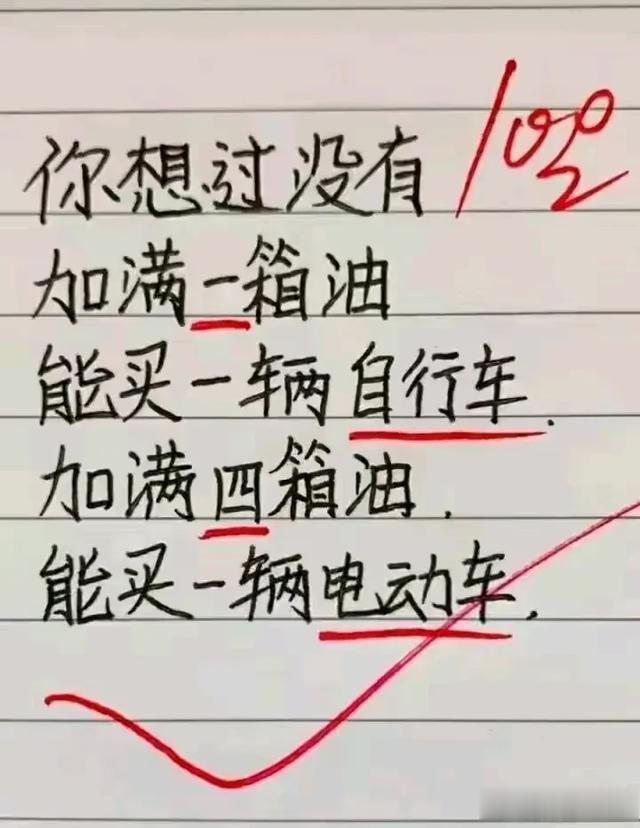 你想过没有
100
加满一箱油
能买一辆自行车.
加满四箱油.
能买一辆电动车.